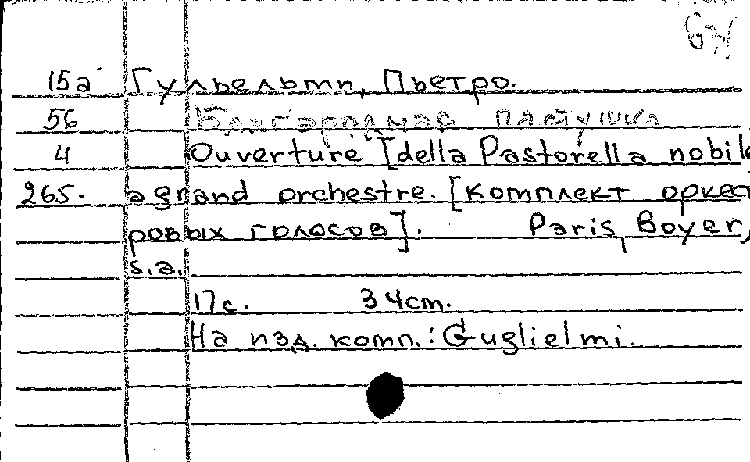 GH
15a Гульельми, Пьетро.
56 Благородная пастушка
4 Ouverture [della Pastorella nobile
265. a grand orchestre. [комплект оркест
ровых голосов]. Paris, Boyer,
s.a.
17с. 34cm.
На изд. комп.: Guglielmi.